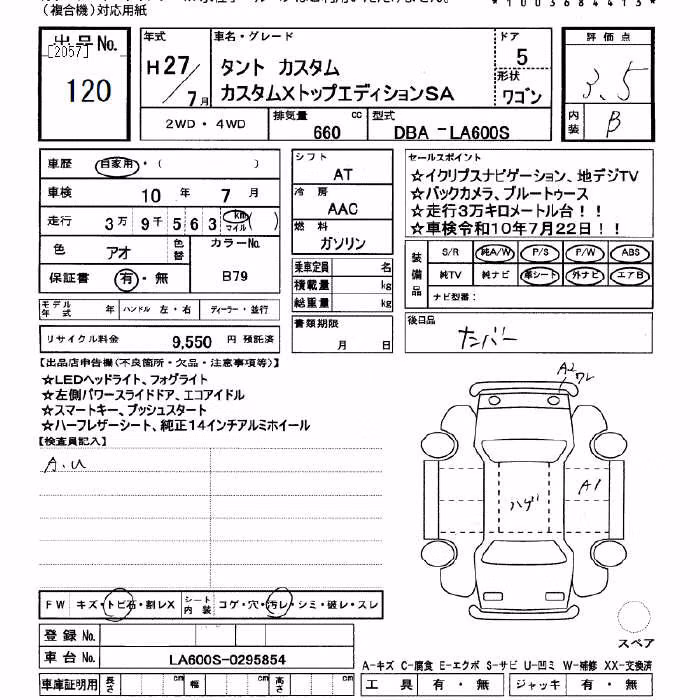 (複合機)対応用紙
*1003684413*
出品No.
[2057]
120
年式
H27/7月
車名・グレード
タント カスタム
カスタムXトップエディションSA
ドア
5
形状
ワゴン
評価点
3.5
内装
B
2WD・4WD
排気量
660
cc
型式
DBA －LA600S
車歴
自家用・(　　　)
車検
10 年 7 月
走行
3万 9千 5 6 3 km マイル ( )
色
アオ
色替
カラーNo.
B79
保証書
有・無
シフト
AT
冷房
AAC
燃料
ガソリン
乗車定員 名
積載量 kg
総重量 kg
セールスポイント
☆イクリプスナビゲーション、地デジTV
☆バックカメラ、ブルートゥース
☆走行3万キロメートル台！！
☆車検令和10年7月22日！！
装備品
S/R 純A/W P/S P/W ABS
純TV 純ナビ 革シート 外ナビ エアB
ナビ型番：
モデル年式 年 ハンドル 左・右 ディーラー・並行
リサイクル料金 9,550 円 預託済
書類期限
月 日
後日品
ナンバー
【出品店申告欄(不良箇所・欠品・注意事項等)】
☆LEDヘッドライト、フォグライト
☆左側パワースライドドア、エコアイドル
☆スマートキー、プッシュスタート
☆ハーフレザーシート、純正14インチアルミホイール
【検査員記入】
A.U
A2
ワレ
A1
ハゲ
FW キズ・トビ石・割レX
シート内装 コゲ・穴・汚レ・シミ・破レ・スレ
登録No.
車台No.
LA600S-0295854
スペア
A-キズ C-腐食 E-エクボ S-サビ U-凹ミ W-補修 XX-交換済
車庫証明用 長さ cm 幅 cm 高さ cm
工具 有・無 ジャッキ 有・無